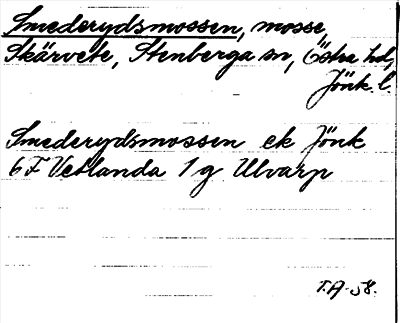 Smederydsmossen, mosse,
Skärvete, Stenberga sn, Östra hd,
Jönk. l.
Smederydsmossen ek Jönk
6F Vetlanda 1 g Ulvarp
T.A-58.